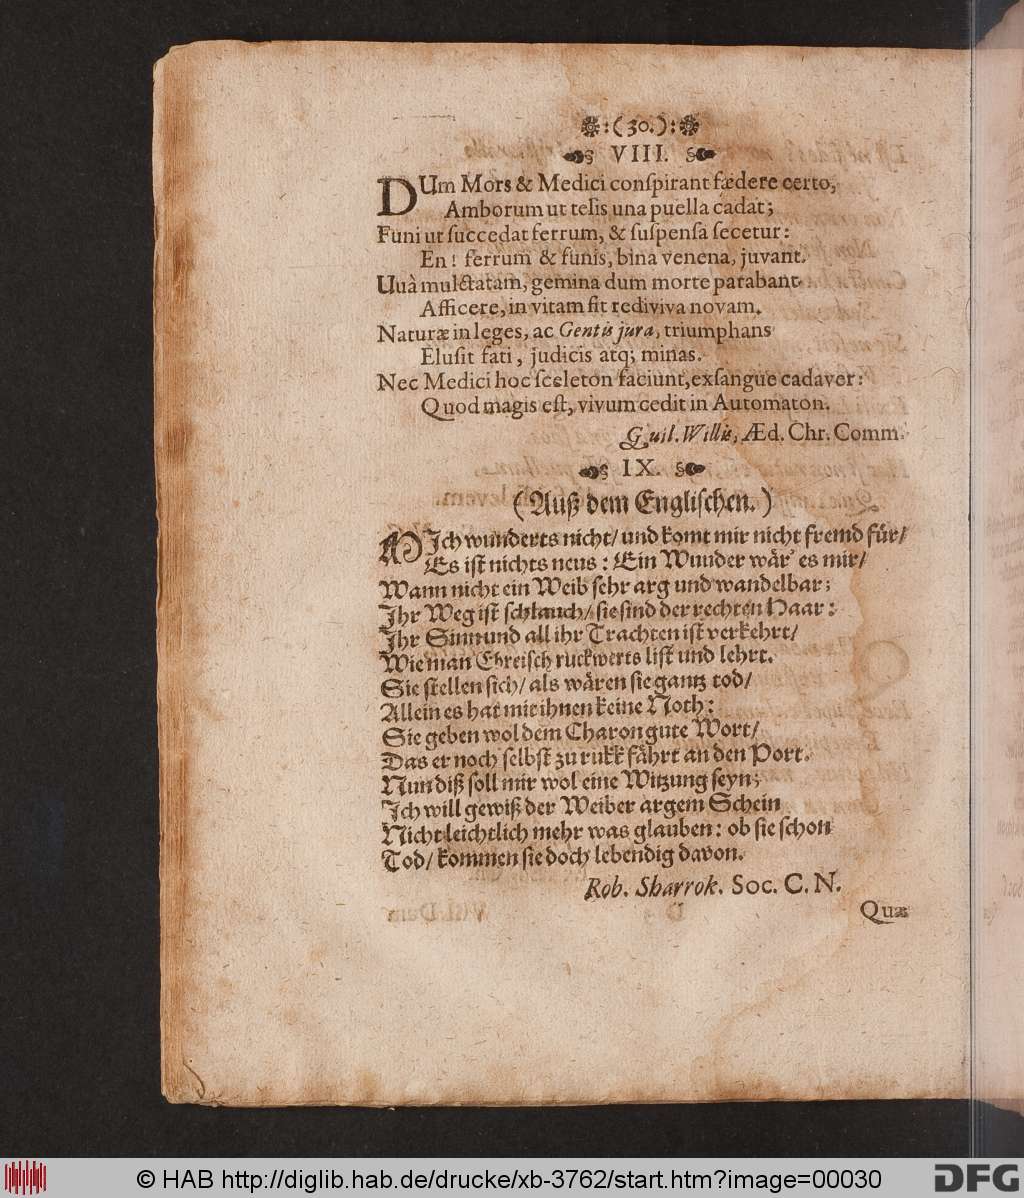 :(30.):
VIII.
DUm Mors & Medici conſpirant fædere certo,
Amborum ut telis una puella cadat;
Funi ut ſuccedat ferrum, & ſuſpenſa ſecetur:
En! ferrum & funis, bina venena, juvant.
Uuà mulctatam, gemina dum morte parabant
Afficere, in vitam ſit rediviva novam.
Naturæ in leges, ac Gentis jura, triumphans
Eluſit fati, judicis atq; minas.
Nec Medici hoc ſceleton faciunt, exſangue cadaver:
Quod magis eſt, vivum cedit in Automaton.
Guil. Willis, Æd. Chr. Comm.
IX.
(Auß dem Engliſchen.)
MIch wunderts nicht/ und komt mir nicht fremd für/
Es iſt nichts neus: Ein Wunder wär' es mir/
Wann nicht ein Weib ſehr arg und wandelbar;
Ihr Weg iſt ſchlauch/ ſie ſind der rechten Haar:
Ihr Sinn und all ihr Trachten iſt verkehrt/
Wie man Ebreiſch ruckwerts liſt und lehrt.
Sie ſtellen ſich/ als wären ſie gantz tod/
Allein es hat mit ihnen keine Noth:
Sie geben wol dem Charon gute Wort/
Das er noch ſelbſt zu rukk fährt an den Port.
Nun diß ſoll mir wol eine Witzung ſeyn;
Ich will gewiß der Weiber argem Schein
Nicht leichtlich mehr was glauben: ob ſie ſchon
Tod/ kommen ſie doch lebendig davon.
Rob. Sharrok. Soc. C. N.
Quæ
© HAB http://diglib.hab.de/drucke/xb-3762/start.htm?image=00030
DFG